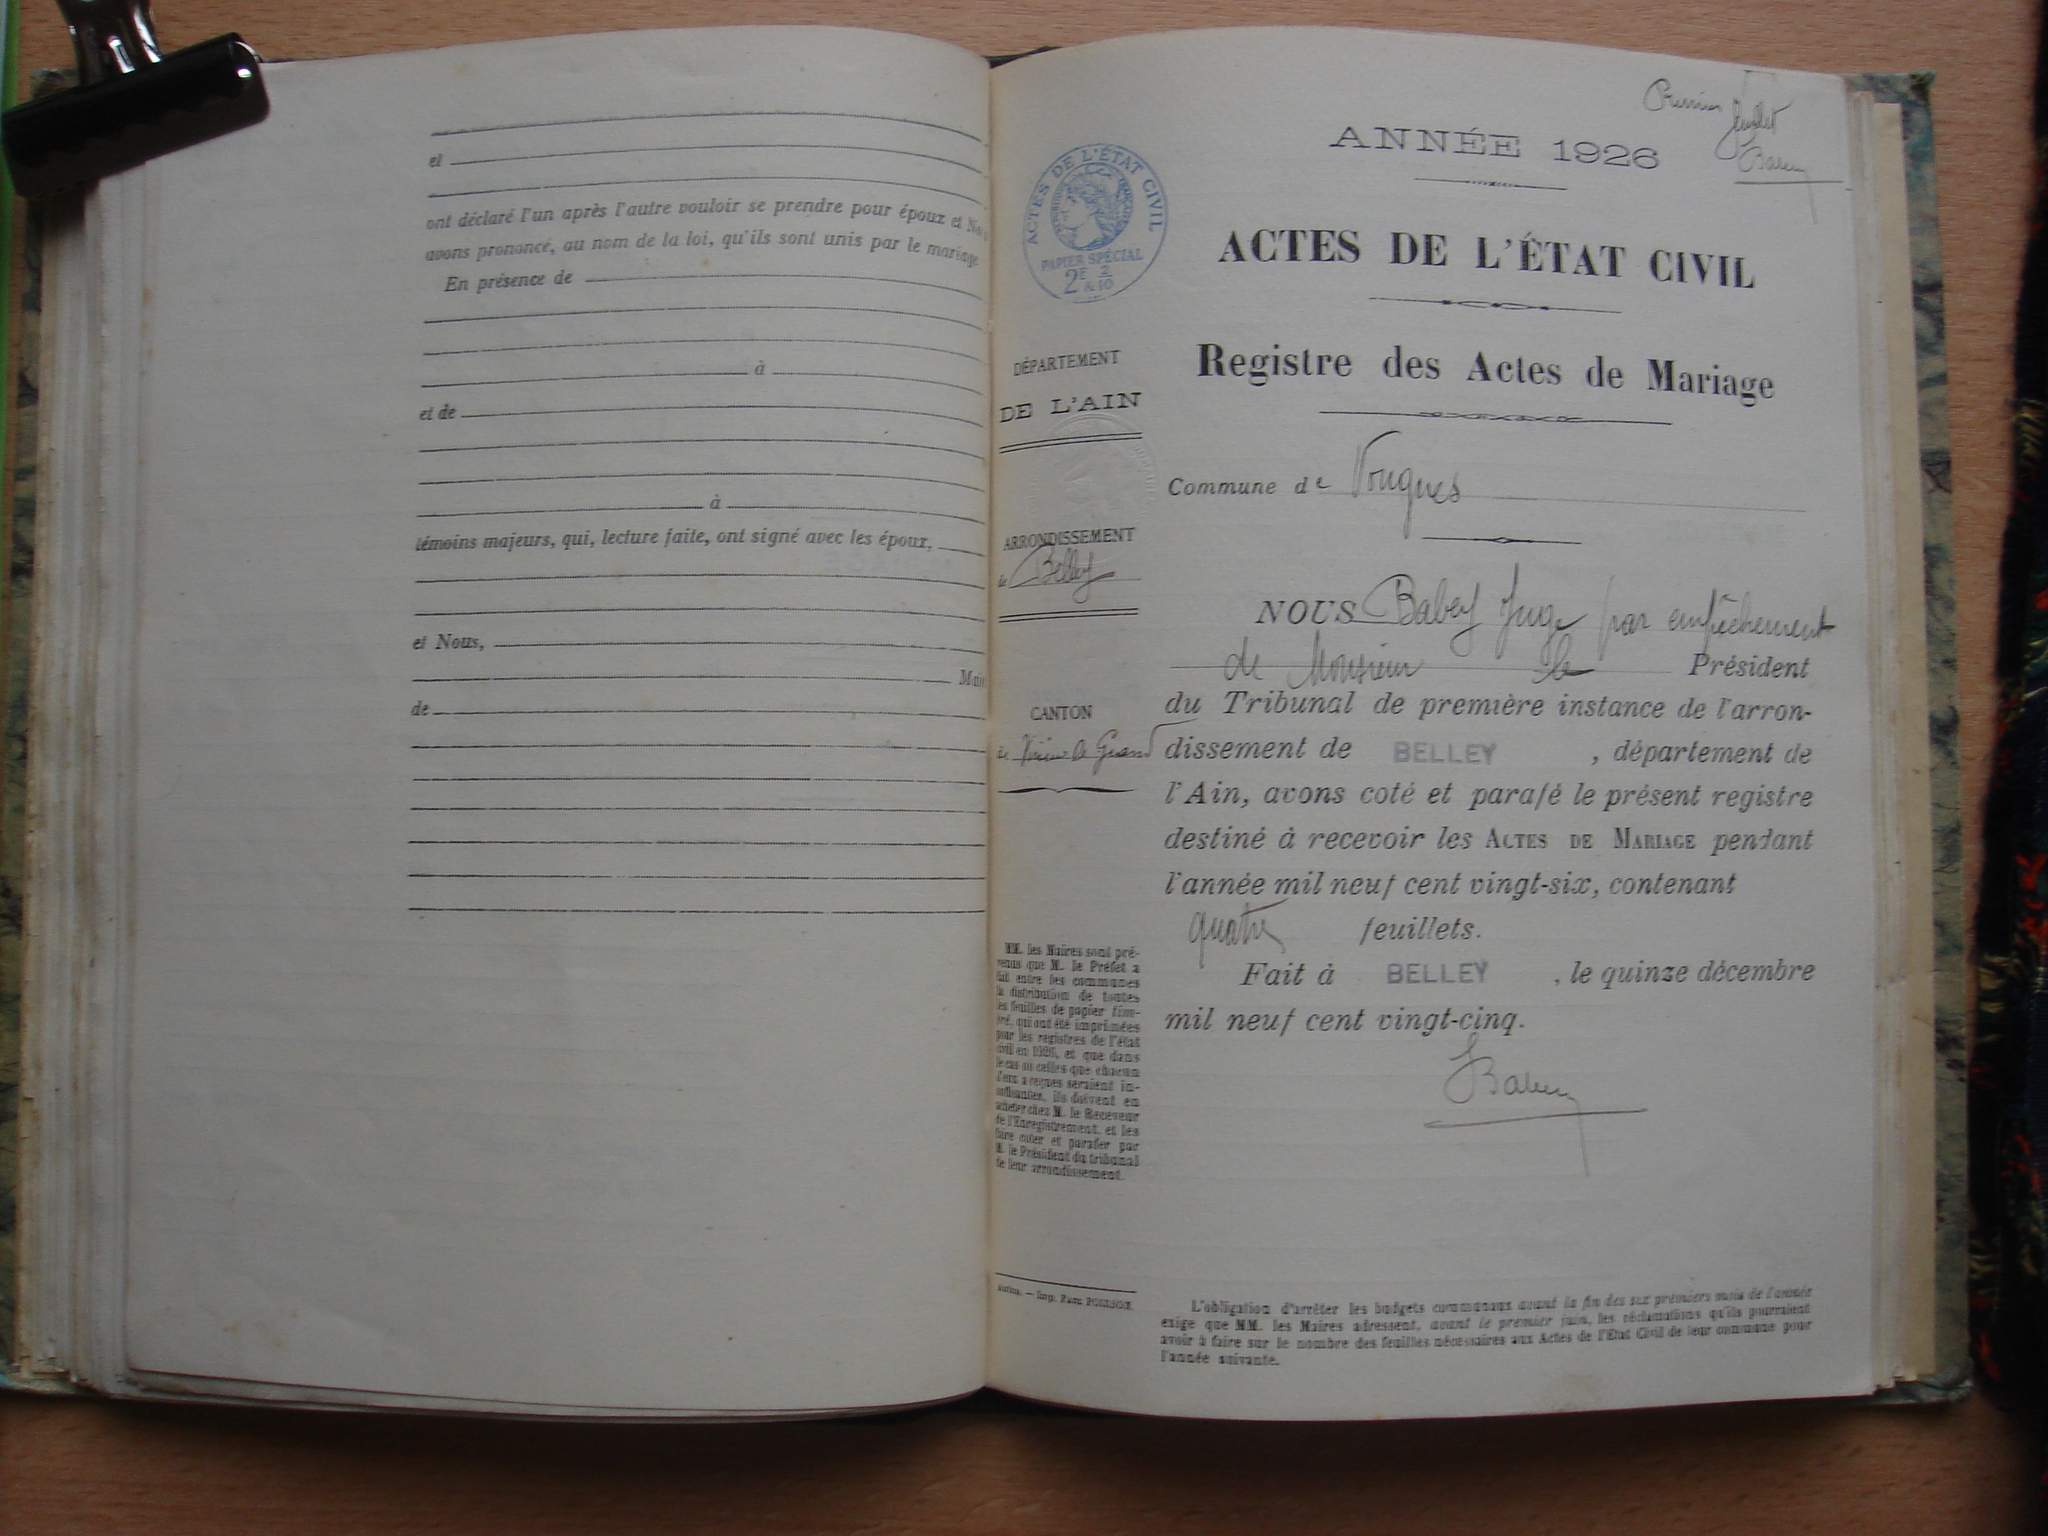 et
ont déclaré l'un après l'autre vouloir se prendre pour époux et
avons prononcé, au nom de la loi, qu'ils sont unis par le mariage
En présence de
à
et de
à
témoins majeurs, qui, lecture faite, ont signé avec les époux,
et Nous,
Mai
de
Premier
feuillet
Babey
ANNÉE 1926
ACTES DE L'ÉTAT CIVIL
PAPIER SPÉCIAL
2F 2/10
ACTES DE L'ÉTAT CIVIL
Registre des Actes de Mariage
DÉPARTEMENT
DE L'AIN
Commune de Vongnes
ARRONDISSEMENT
de Belley
CANTON
de Virieu le Grand
NOUS Babey Juge par empêchement
de Monsieur le Président
du Tribunal de première instance de l'arron-
dissement de BELLEY, département de
l'Ain, avons coté et parafé le présent registre
destiné à recevoir les ACTES DE MARIAGE pendant
l'année mil neuf cent vingt-six, contenant
quatre feuillets.
Fait à BELLEY, le quinze décembre
mil neuf cent vingt-cinq.
Babey
MM. les Maires sont pré-
venus que M. le Préfet a
fait entre les communes
la distribution de toutes
les feuilles de papier tim-
bré, qui ont été imprimées
pour les registres de l'état
civil en 1926, et que dans
le cas où celles que chacun
d'eux a reçues seraient in-
suffisantes, ils doivent en
acheter chez M. le Receveur
de l'Enregistrement, et les
faire coter et parafer par
M. le Président du tribunal
de leur arrondissement.
Imp.
L'obligation d'arrêter les budgets communaux avant la fin des six premiers mois de l'année
exige que MM. les Maires adressent, avant le premier juin, les réclamations qu'ils pourraient
avoir à faire sur le nombre des feuilles nécessaires aux Actes de l'État Civil de leur commune pour
l'année suivante.